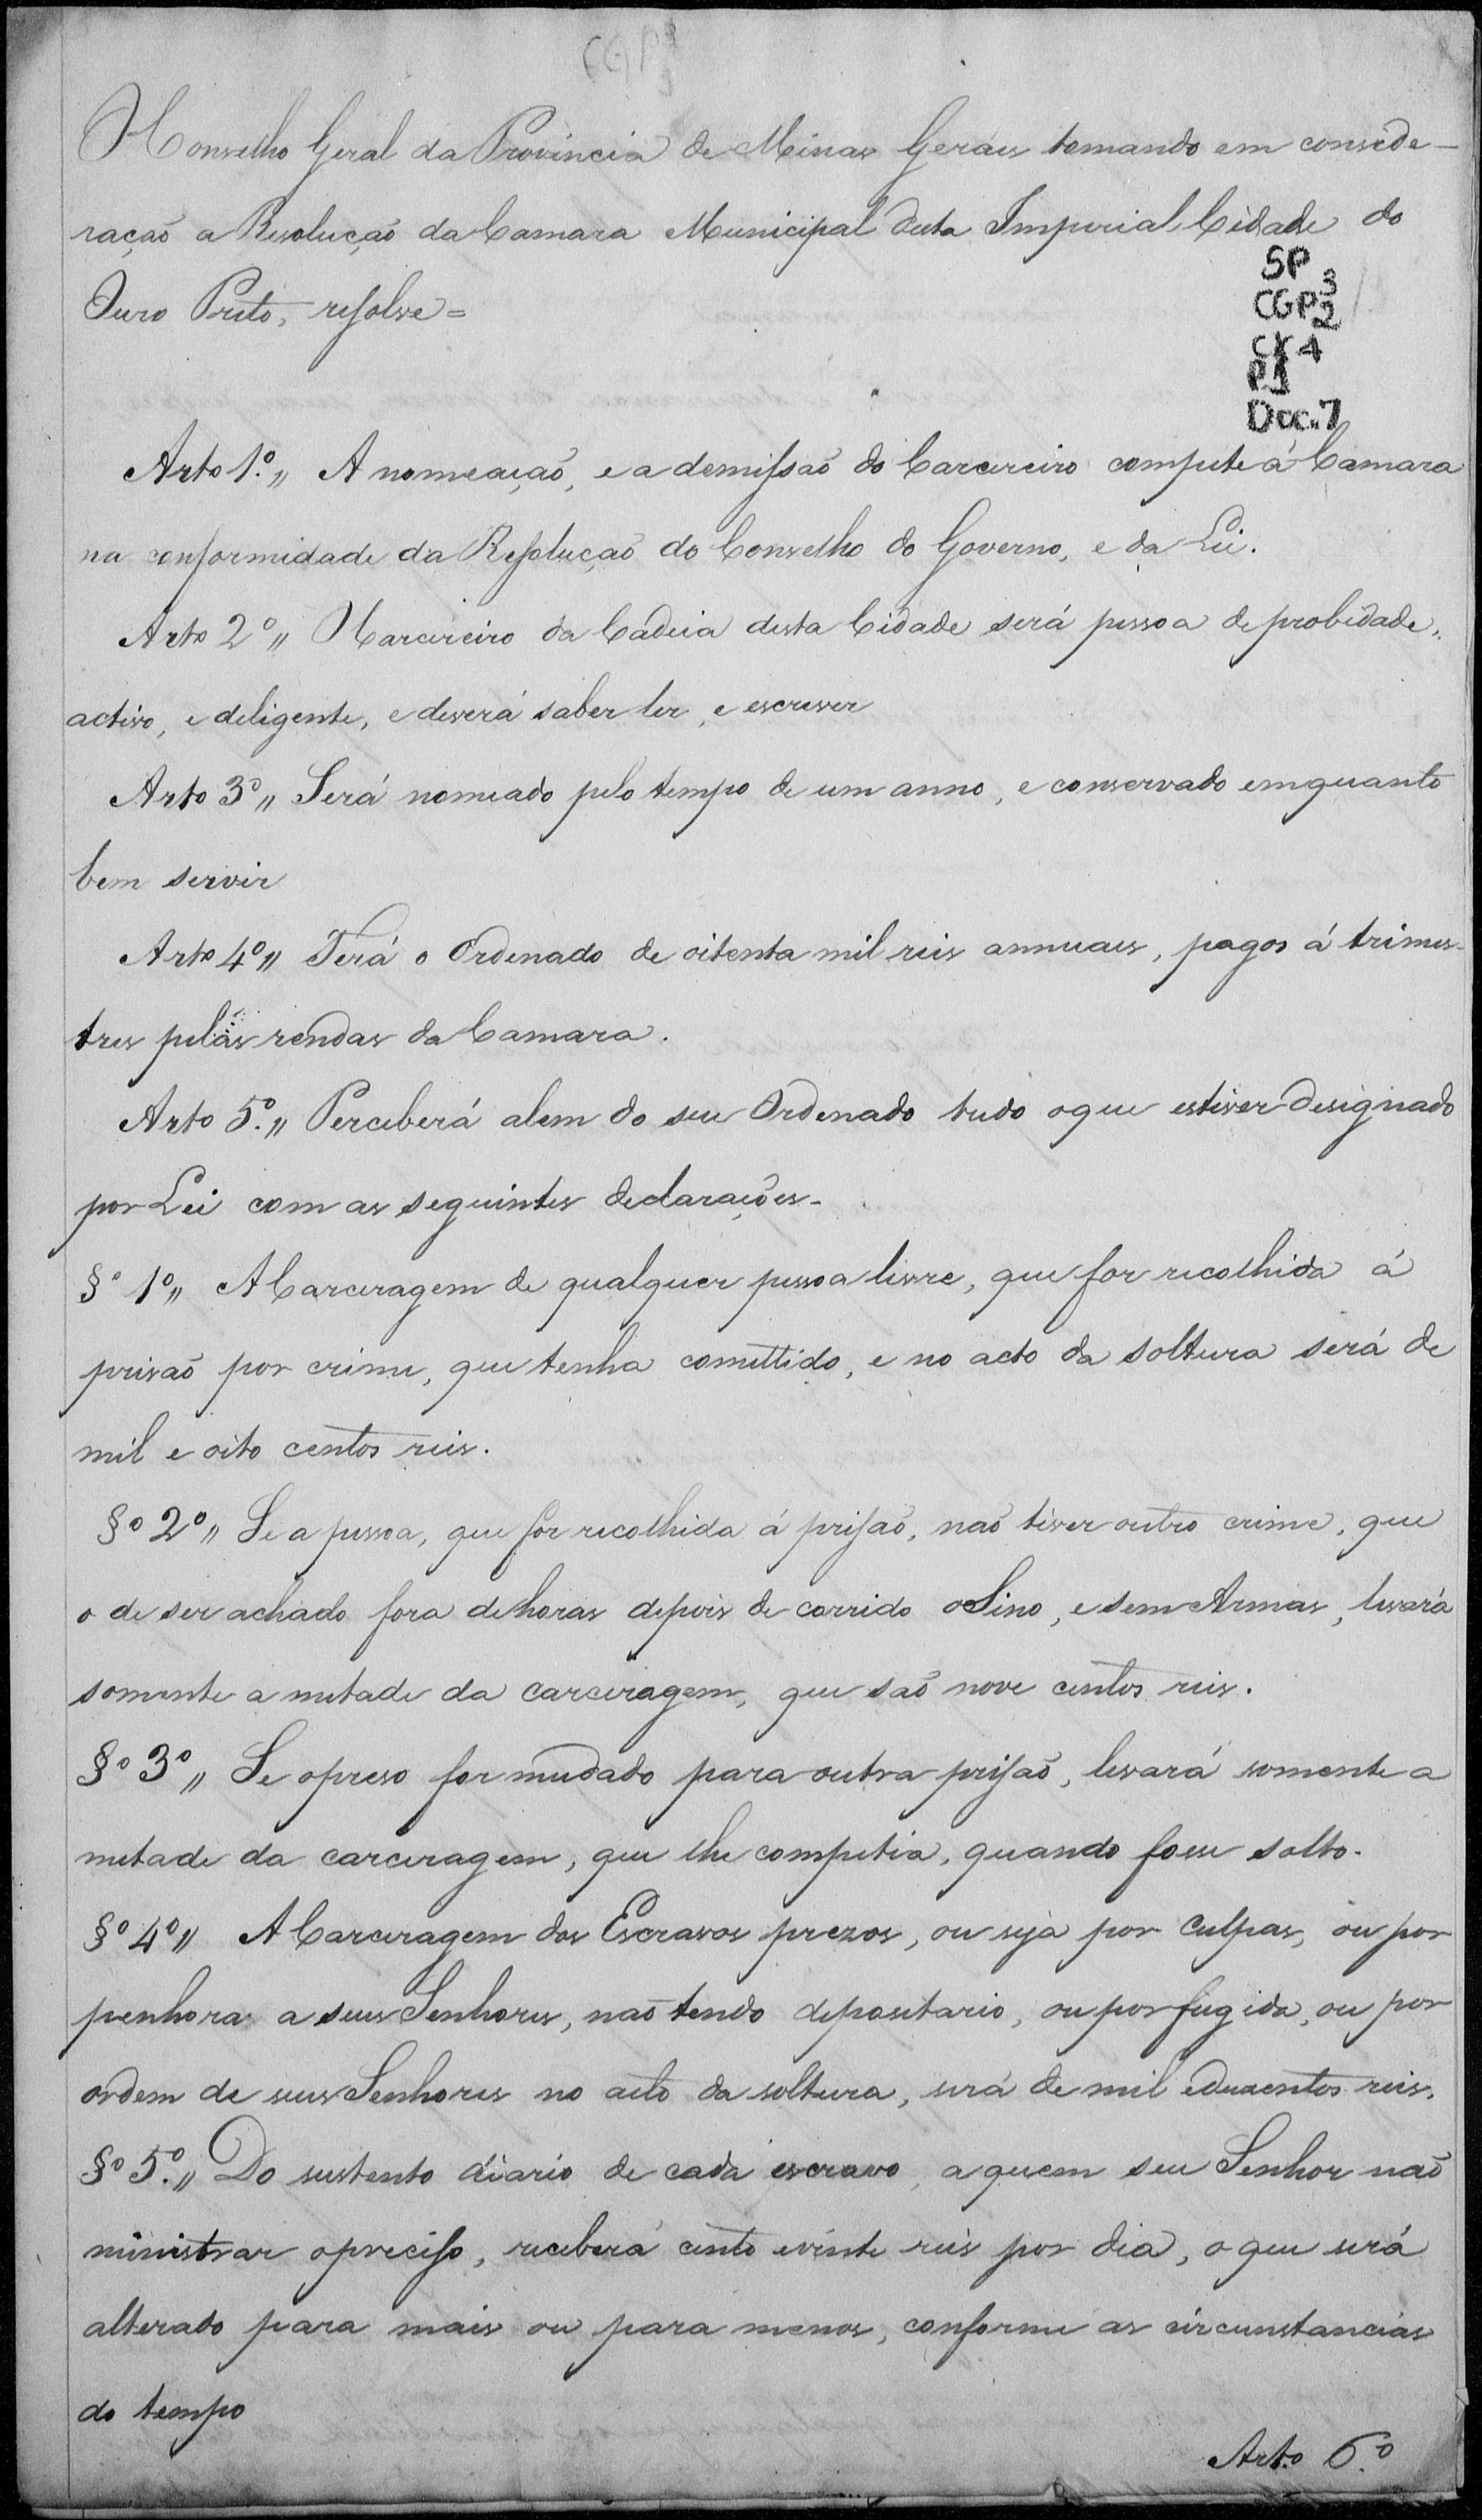 CGP3
O Conselho Geral da Provincia de Minas Geraes tomando em conside-
ração a Resolução da Camara Municipal desta Imperial Cidade do
Ouro Preto, resolve=
SP
CGP 3/2
CX 4
P1
Doc. 7
Arto 1.º,, A nomeação, e a demissão do Carcereiro compete á Camara
na conformidade da Resolução do Conselho do Governo, e da Lei.
Arto 2º,, O Carcereiro da Cadeia desta Cidade será pessoa de probidade,
activo, e deligente, e deverá saber ler, e escrever
Arto 3º,, Será nomeado pelo tempo de um anno, e conservado emquanto
bem servir
Arto 4º,, Terá o Ordenado de oitenta mil reis annuaes, pagos á trimes-
tres pelas rendas da Camara.
Arto 5.º,, Perceberá alem do seu Ordenado tudo o que estiver designado
por Lei com as seguintes declarações-
§º 1º,, A Carceragem de qualquer pessoa livre, que for recolhida á
prisão por crime, que tenha comettido, e no acto da soltura será de
mil e oito centos reis.
§º 2º,, Se a pessoa, que for recolhida á prisão, não tiver outro crime, que
o de ser achado fora de horas depois de corrido o Sino, e sem Armas, levará
somente a metade da carceragem, que são nove centos reis.
§º 3º,, Se o preso for mudado para outra prisão, levará somente a
metade da carceragem, que lhe competia, quando fosse solto.
§º 4º,, A Carceragem dos Escravos prezos, ou seja por culpas, ou por
penhora a seus Senhores, não tendo depositario, ou por fugida, ou por
ordem de seus Senhores no acto da soltura, será de mil e duzentos reis.
§º 5.º,, Do sustento diario de cada escravo, a quem seu Senhor não
ministrar o preciso, receberá cento e vinte reis por dia, o que será
alterado para mais ou para menos, conforme as circunstancias
do tempo
Arto. 6.º